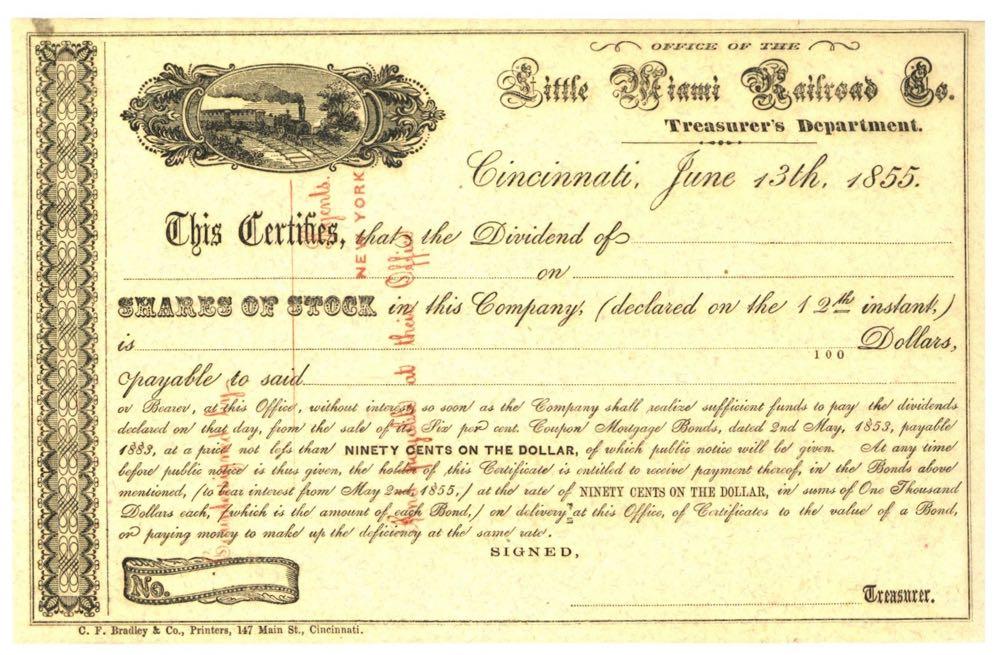 OFFICE OF THE
Little Miami Railroad Co.
Treasurer's Department.
Cincinnati, June 13th, 1855.
This Certifies, that the Dividend of
on
SHARES OF STOCK in this Company, (declared on the 12th instant,)
is 100 Dollars,
payable to said
or Bearer, at this Office, without interest, so soon as the Company shall realize sufficient funds to pay the dividends
declared on that day, from the sale of its Six per cent. Coupon Mortgage Bonds, dated 2nd May, 1853, payable
1883, at a price not less than NINETY CENTS ON THE DOLLAR, of which public notice will be given. At any time
before public notice is thus given, the holder of this Certificate is entitled to receive payment thereof, in the Bonds above
mentioned, (to bear interest from May 2nd 1855,) at the rate of NINETY CENTS ON THE DOLLAR, in sums of One Thousand
Dollars each, (which is the amount of each Bond,) on delivery at this Office, of Certificates to the value of a Bond,
or paying money to make up the deficiency at the same rate.
SIGNED,
No.
Treasurer.
C. F. Bradley & Co., Printers, 147 Main St., Cincinnati.
Agents.
NEW YORK
payable at their Office